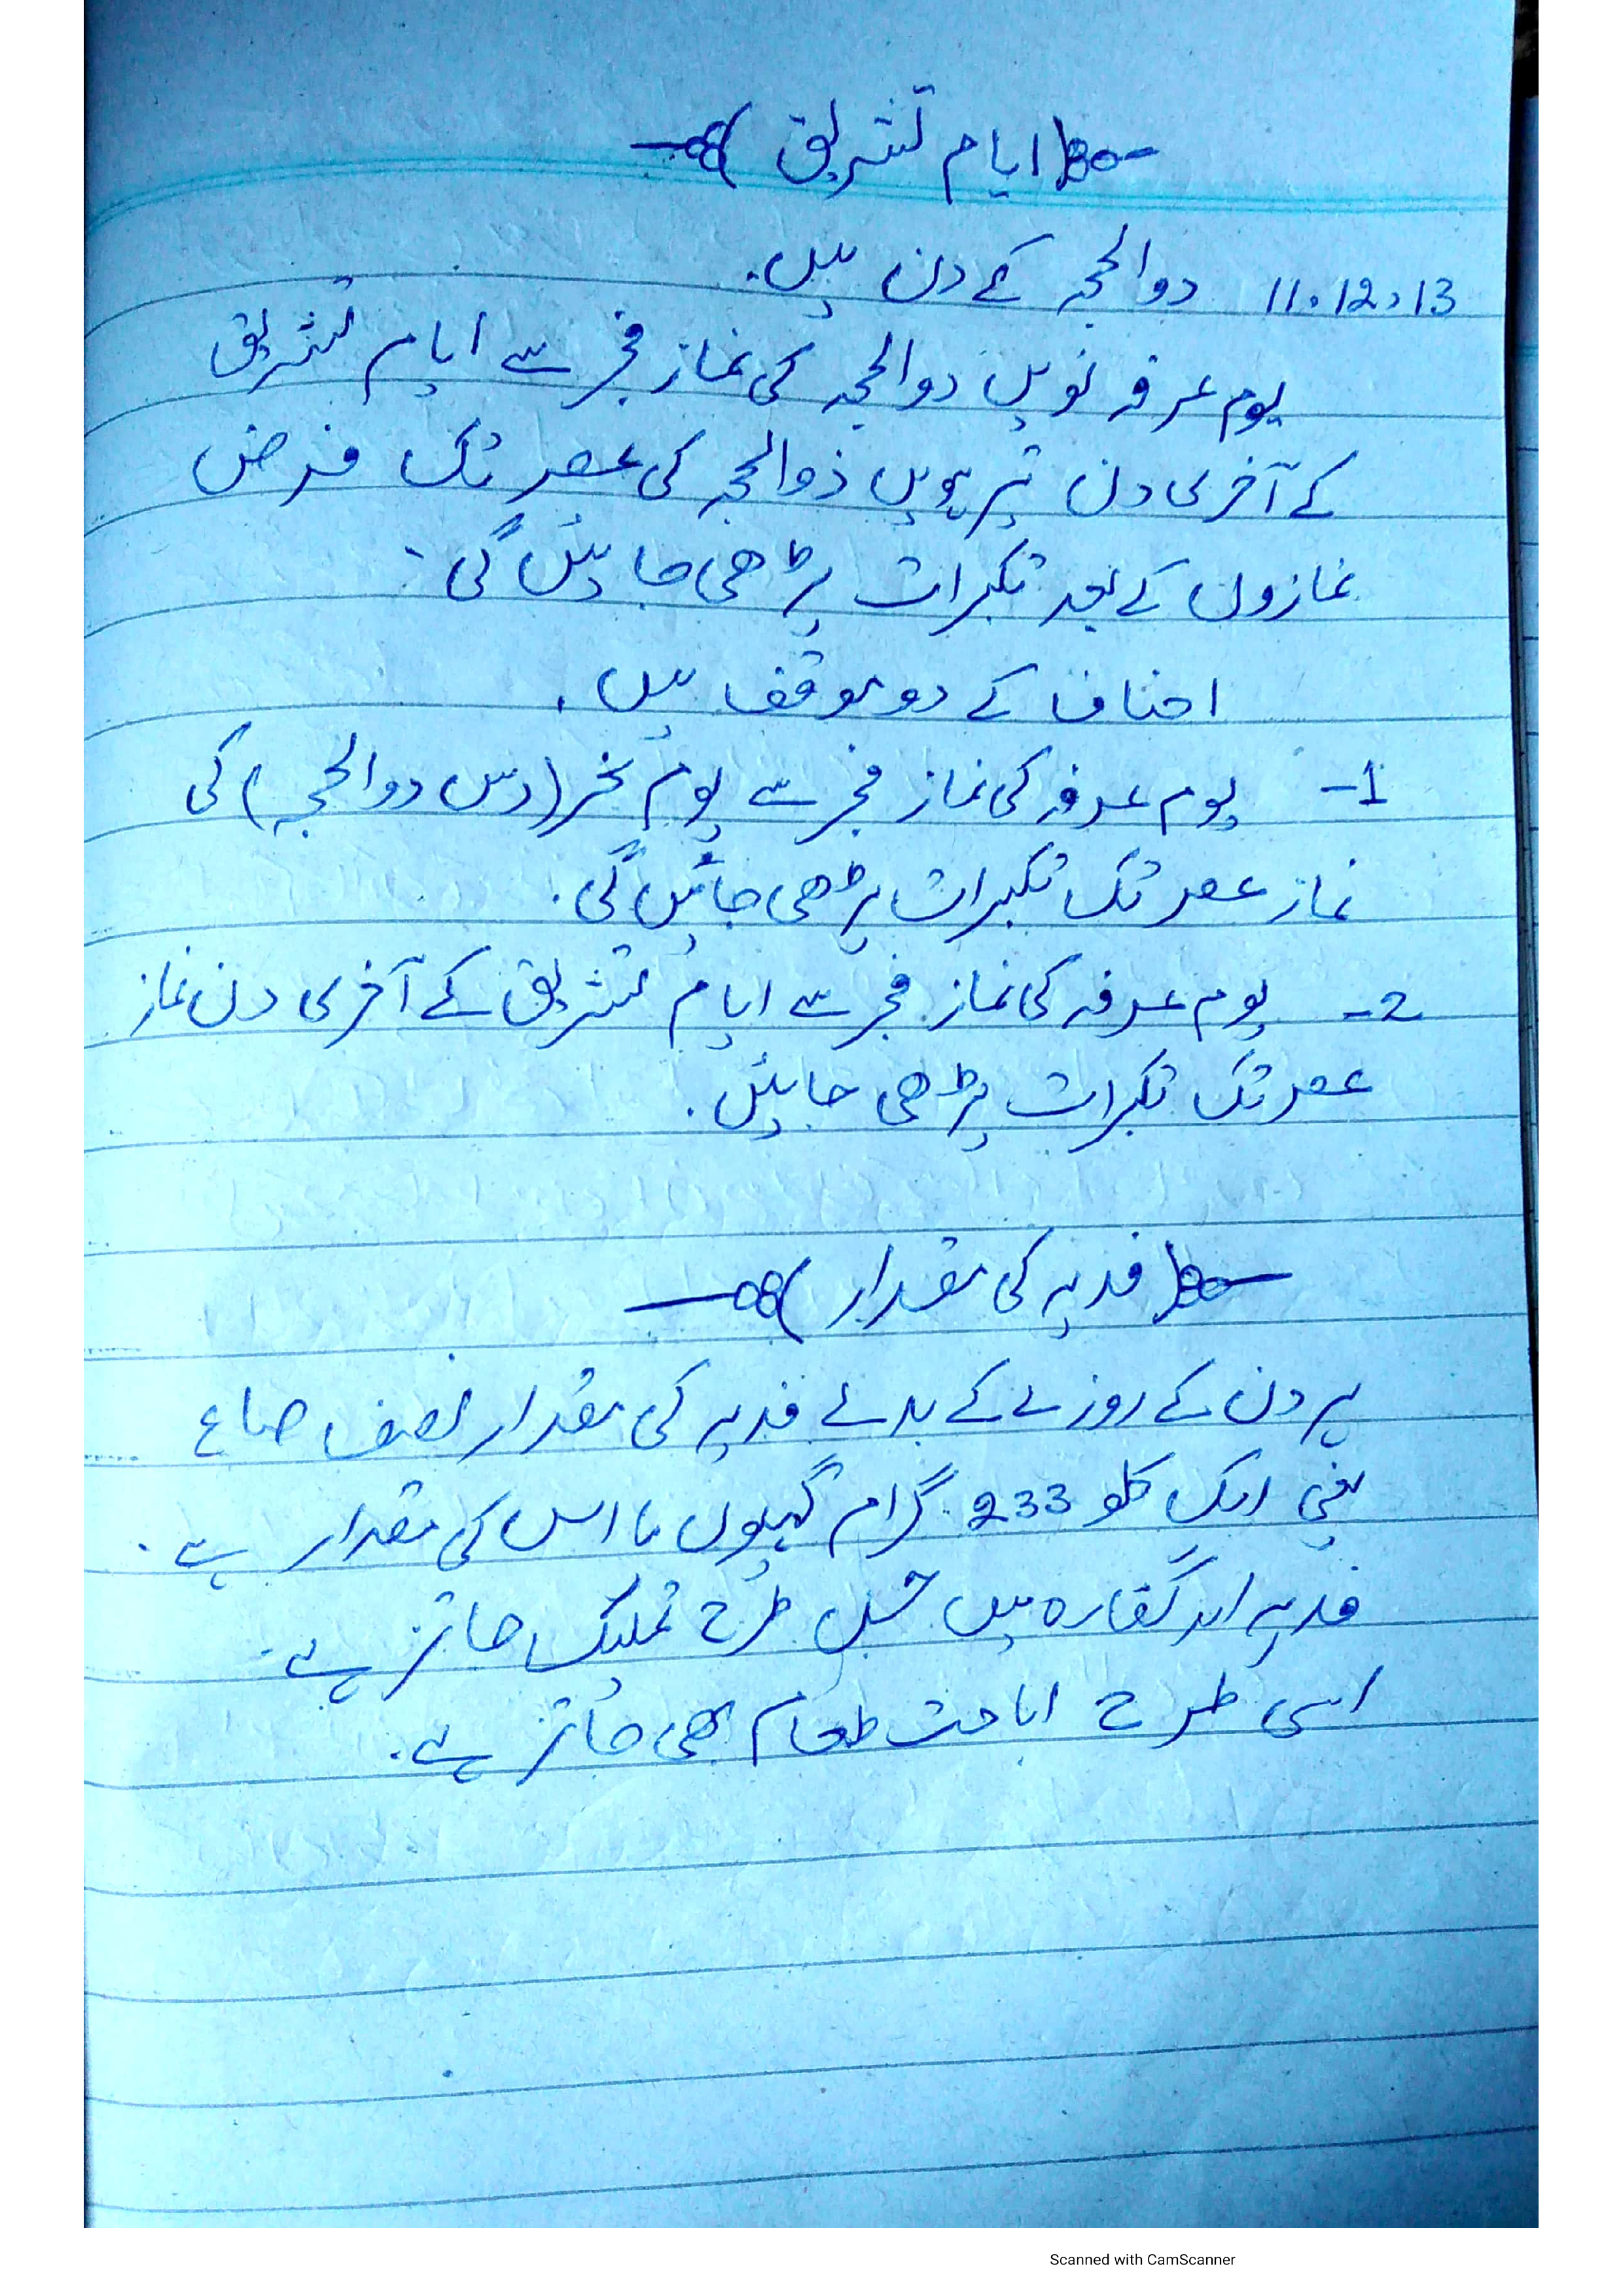 (ایام تشریق)
11،12،13 ذوالحجہ کے دن ہیں۔
یوم عرفہ نویں ذوالحجہ کی نماز فجر سے ایام تشریق
کے آخری دن تیرہویں ذوالحجہ کی عصر تک فرض
نمازوں کے بعد تکبیرات پڑھی جائیں گی۔
احناف کے دو موقف ہیں۔
1- یوم عرفہ کی نماز فجر سے یوم نحر (دس ذوالحجہ) کی
نماز عصر تک تکبیرات پڑھی جائیں گی۔
2- یوم عرفہ کی نماز فجر سے ایام تشریق کے آخری دن نماز
عصر تک تکبیرات پڑھی جائیں۔
(فدیہ کی مقدار)
ہر دن کے روزے کے بدلے فدیہ کی مقدار نصف صاع
یعنی ایک کلو 233 گرام گیہوں یا اس کی مقدار ہے۔
فدیہ اور کفارہ میں جس طرح تملیک جائز ہے۔
اسی طرح اباحت طعام بھی جائز ہے۔
Scanned with CamScanner